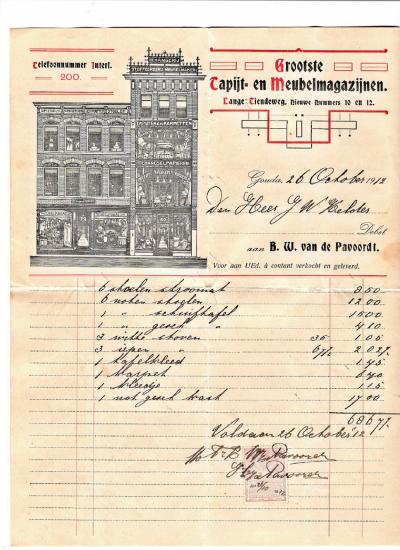 Telefoonnummer Interl.
200.
Grootste
Tapijt- en Meubelmagazijnen.
Lange Tiendeweg, Nieuwe Nummers 10 en 12.
Gouda, 26 October 1912
Den Heer J W
Debet
aan B. W. van de Pavoordt.
Voor aan UEd. à contant verkocht en geleverd.
6 stoelen stroomat 8 50
6 noten stoelen 12 00
1 " schuiftafel 15 00
1 " gesch " 4 10
3 witte stoven 35 1 05
3 iepen " 67½ 2 02½
1 tafelkleed 1 45
1 karpet 6 40
1 kleedje 1 15
1 not gesch kast 17 00
68 67½
Voldaan 26 October '12
B W vd Pavoordt
vd Pavoordt